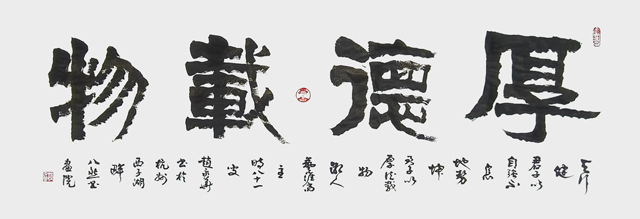 厚德載物
天行
健
君子以
自强不
息
地势
坤
君子以
厚德載
物
主
時八十一
叟
書於
杭州
西子湖
畔
畫院